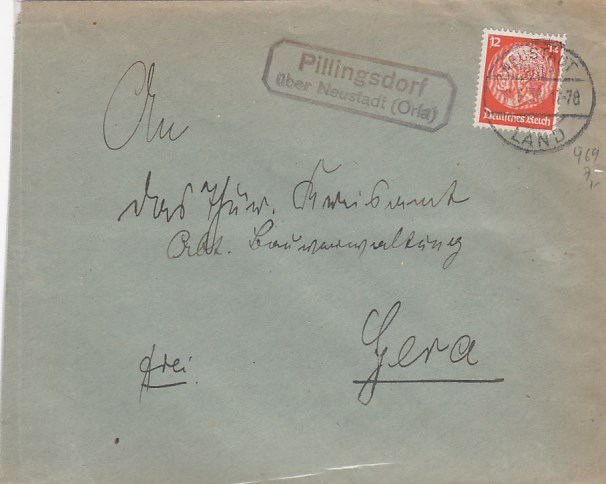 Pillingsdorf
über Neustadt (Orla)
12 12
Deutsches Reich
NEUSTADT
7-78
LAND
969
An
das Thür. Kreisamt
Abt. Bauverwaltung
Gera
frei.